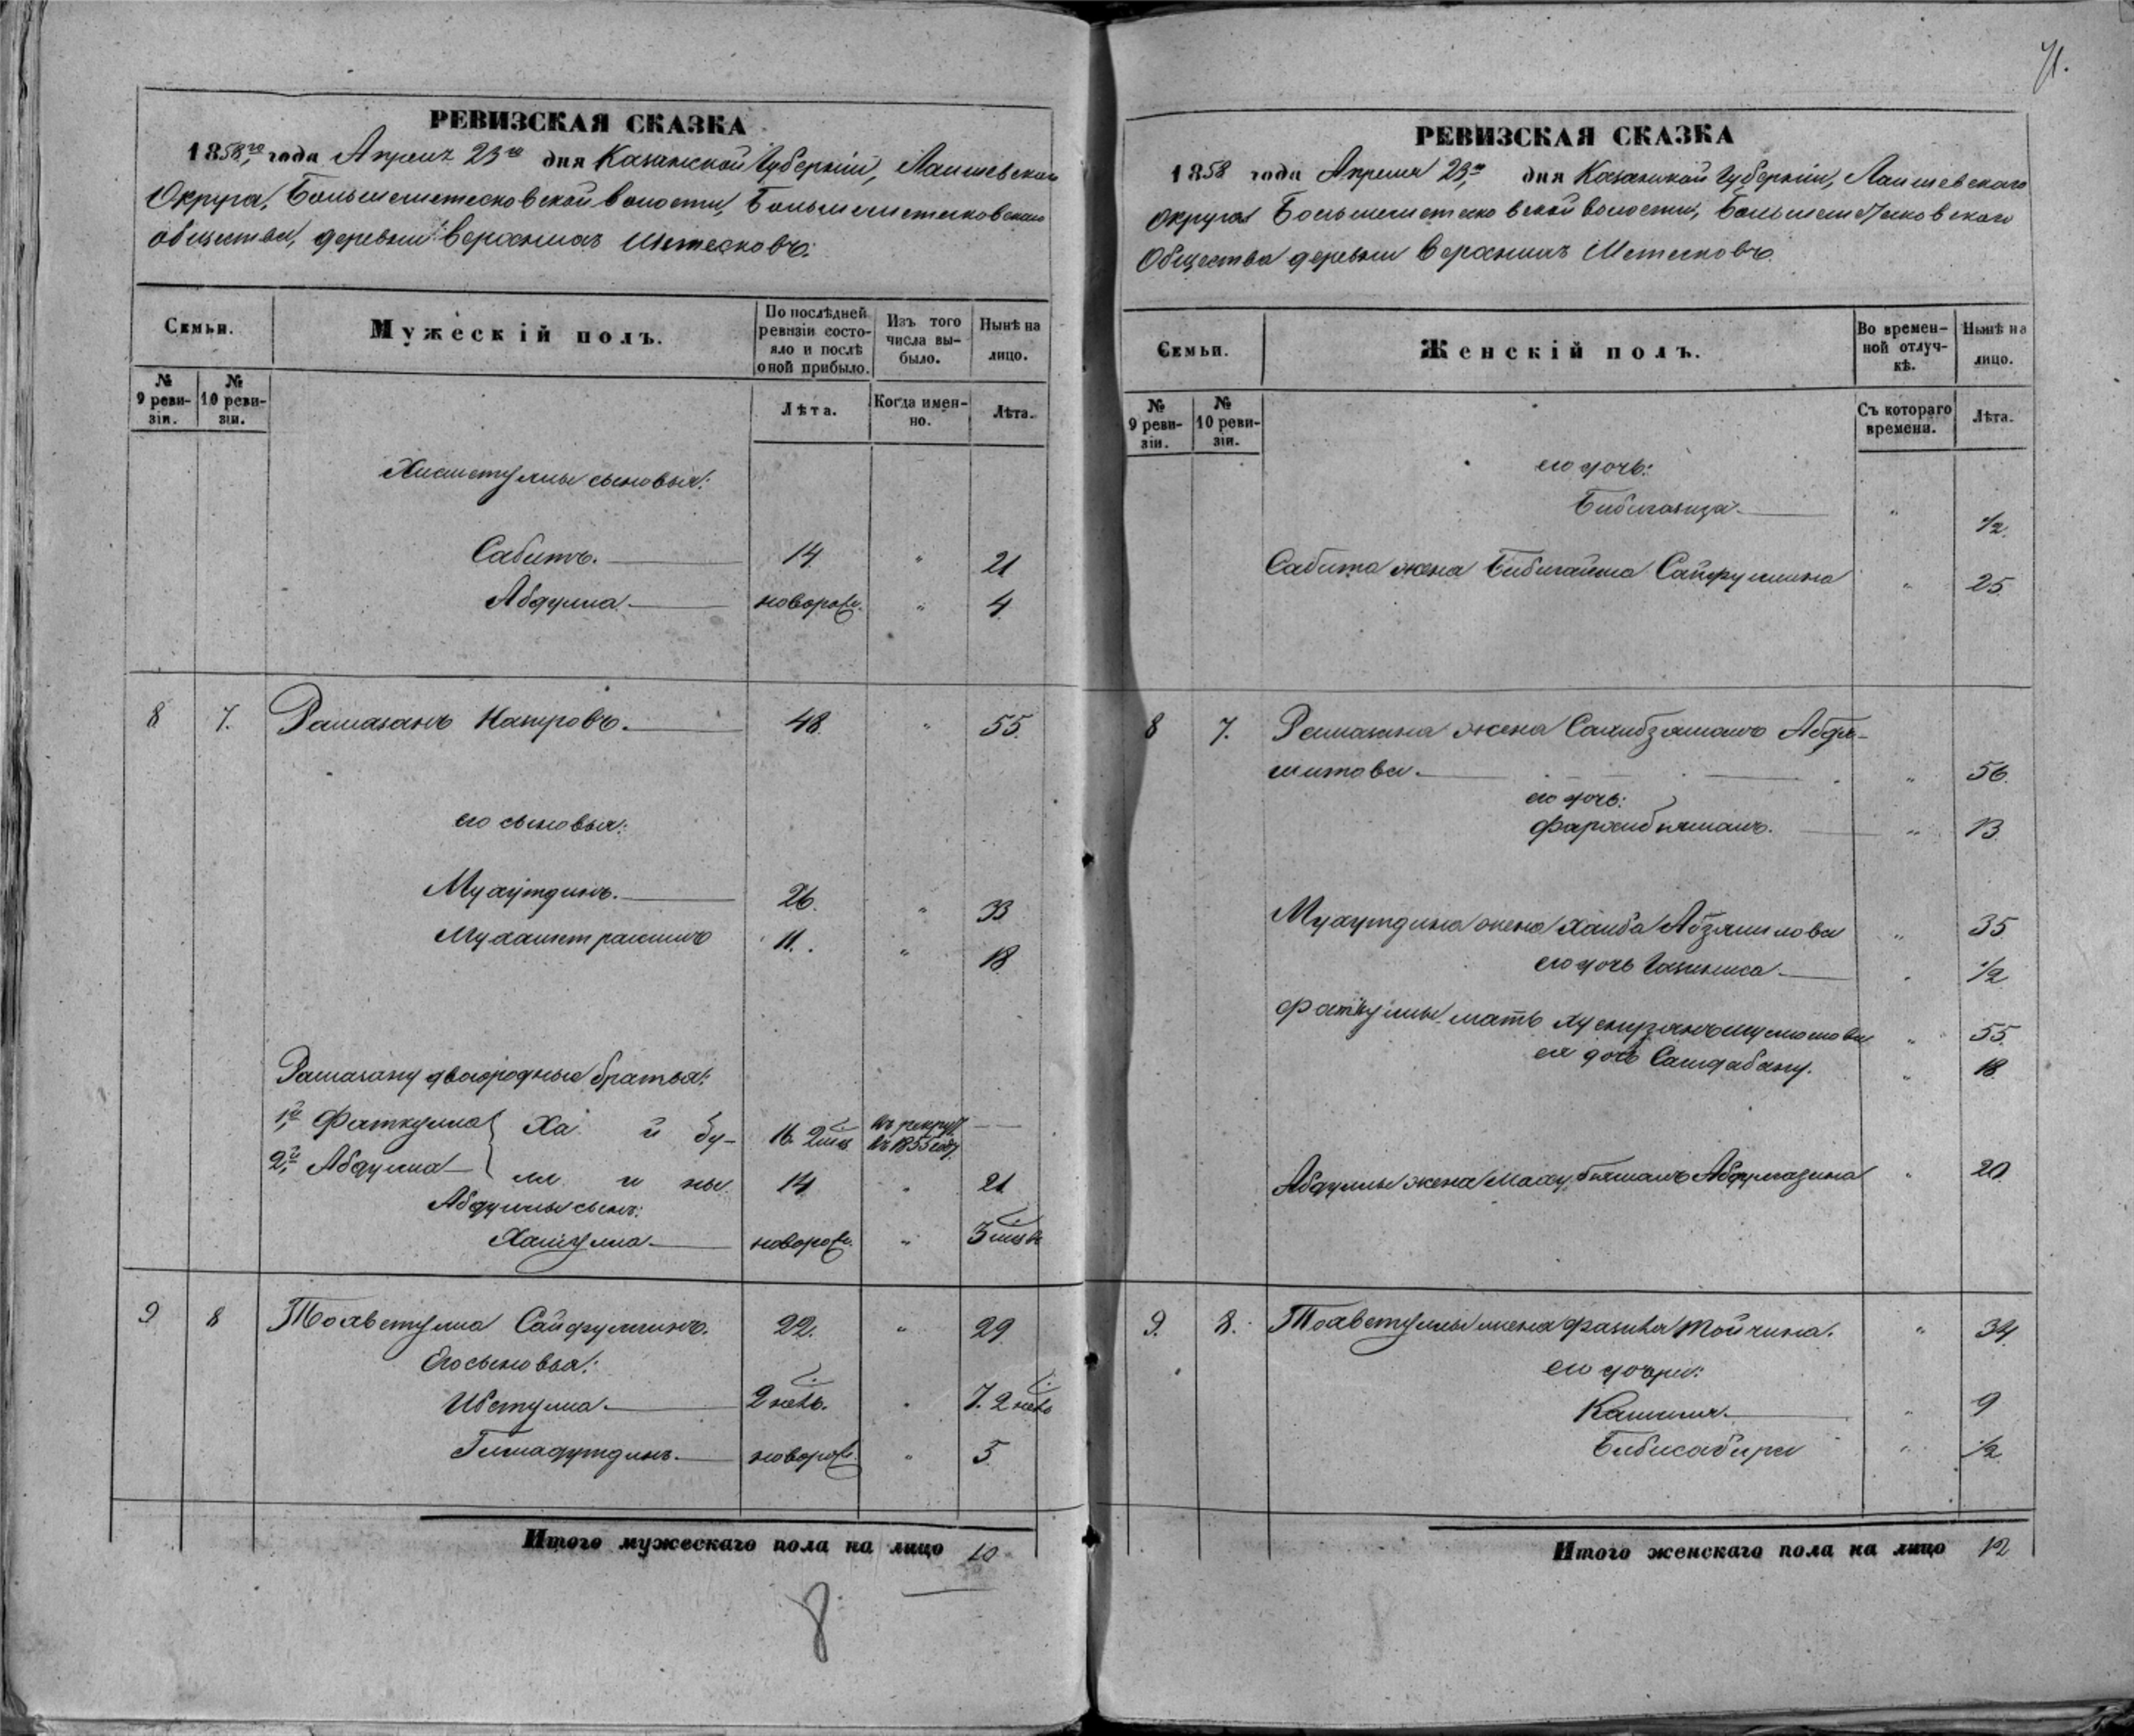 71.
РЕВИЗСКАЯ СКАЗКА
1858,го года Апреля 23го дня Казанской Губерніи, Лаишевскаго
Округа, Большеметесковской волости, Большеметесковскаго
общества, деревни Верхнихъ Метесковъ.
Семьи.
Мужескій полъ.
По послѣдней ревизіи состояло и послѣ оной прибыло.
Изъ того числа выбыло.
Нынѣ на лицо.
№ 9 ревизіи.
№ 10 ревизіи.
Лѣта.
Когда именно.
Лѣта.
Хисметуллы сыновья:
Сабитъ. 14 " 21
Абдулла. новорож. " 4
8 7. Рамазанъ Капировъ. 48. " 55.
его сыновья:
Мухутдинъ. 26. " 33
Мухаметрахимъ 11. " 18.
Рамазану двоюродные братья:
1,й Фаткулла } Ха й бу- 16. 2 мѣс. въ рекрут. въ 1855 году. —
2,й Абдулла } лл и ны. 14 " 21
Абдуллы сынъ:
Хайрулла новорож. " 3 мѣс.
9 8 Тохветулла Сайфуллинъ. 22. " 29
Его сыновья:
Ибетулла. 2 нед. " 7. 2 нед.
Гимадутдинъ. новорож. " 5
Итого мужескаго пола на лицо 10
8
РЕВИЗСКАЯ СКАЗКА
1858 года Апреля 23го, дня Казанской Губерніи, Лаишевскаго
округа Большеметесковской волости, Большеметесковскаго
Общества деревни Верхнихъ Метесковъ.
Семьи.
Женскій полъ.
Во временной отлучкѣ.
Нынѣ на лицо.
№ 9 ревизіи.
№ 10 ревизіи.
Съ котораго времени.
Лѣта.
его дочь:
Бибигазиза. " 1/2.
Сабита жена Бибигайша Сайфуллина " 25
8 7. Рамазана жена Сахибзямалъ Абдя-
митова. " 56.
его дочь:
Фархибзямалъ. " 13.
Мухутдина жена Хаиба Абзялилова " 35
его дочь Газиниса " 1/2
Фаткуллы мать " 55.
ея дочь Саидабану. " 18
Абдуллы жена Абдулвагизина " 20
9. 8. Тохветуллы жена Фазиля Тойчина. " 34.
его дочери:
Камиля. " 9
Бибисабира " 1/2
Итого женскаго пола на лицо 12